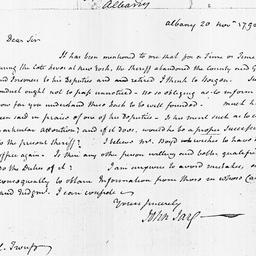 Albany
albany 20 novr 179
Dear Sir
It has been mentioned to me that for a Time or Time
during the late at new York, the Sheriff abandoned the County and G
and Prisoners to his Deputies and retired I think to
Conduct ought not to pass unnoticed - be so obliging as to inform
how far you understand these facts to be well founded. much h
been said in praise of one of his Deputies - is his merit such as to c
particular attention? and if it does, would he be a proper Successor
to the present Sheriff? I believe Mr. Boyd wishes to have
office again. Is there any other person willing and better qualified
to the Duties of it? I am anxious to avoid mistakes, and
consequently to obtain Information from those in whose Can
and Judgmt. I can confide
Yours sincerely
John Jay